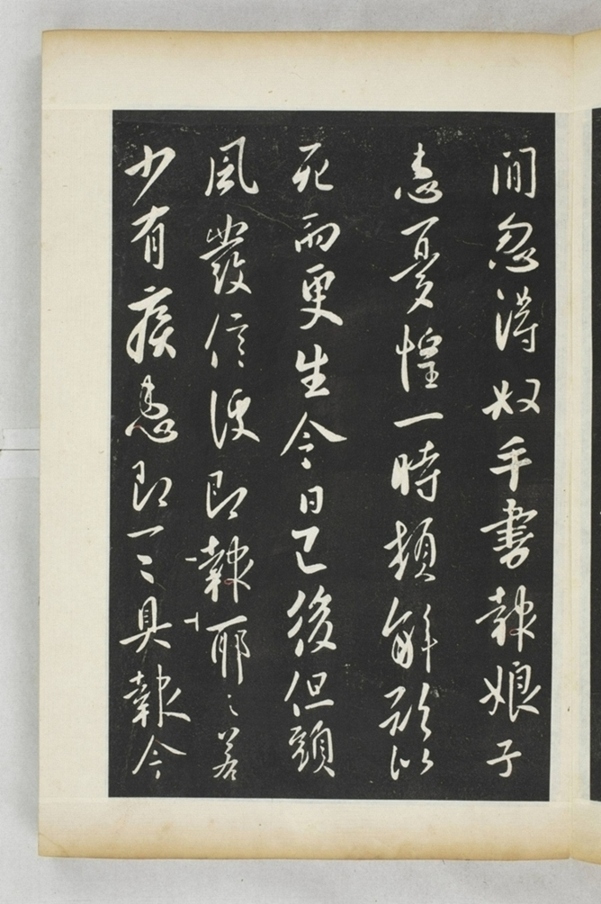 間忽得奴手書報娘子
患憂惶一時頓解欣以
死而更生今日已後但頭
風發信便即報耶〻若
少有疾患即一〻具報今